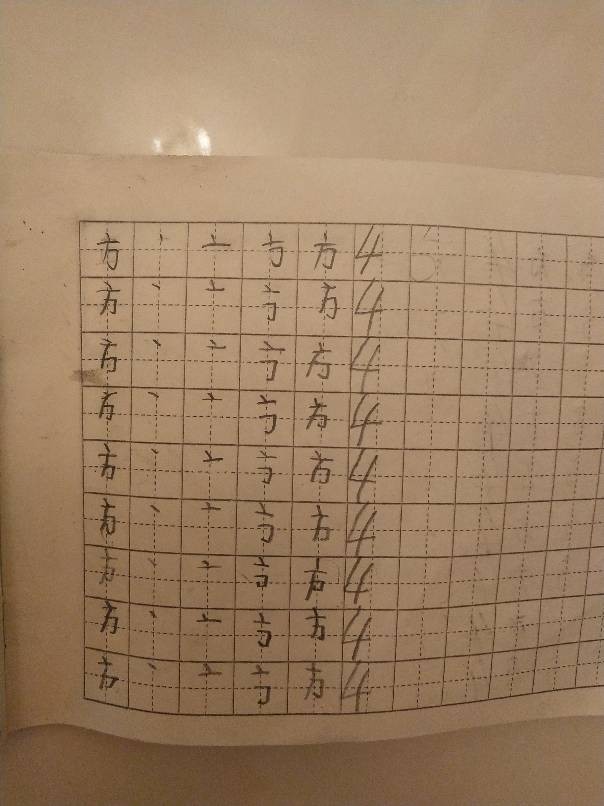 方 丶 亠 亐 方 4
方 丶 亠 亐 方 4
方 丶 亠 亐 方 4
方 丶 亠 亐 方 4
方 丶 亠 亐 方 4
方 丶 亠 亐 方 4
方 丶 亠 亐 方 4
方 丶 亠 亐 方 4
方 丶 亠 亐 方 4